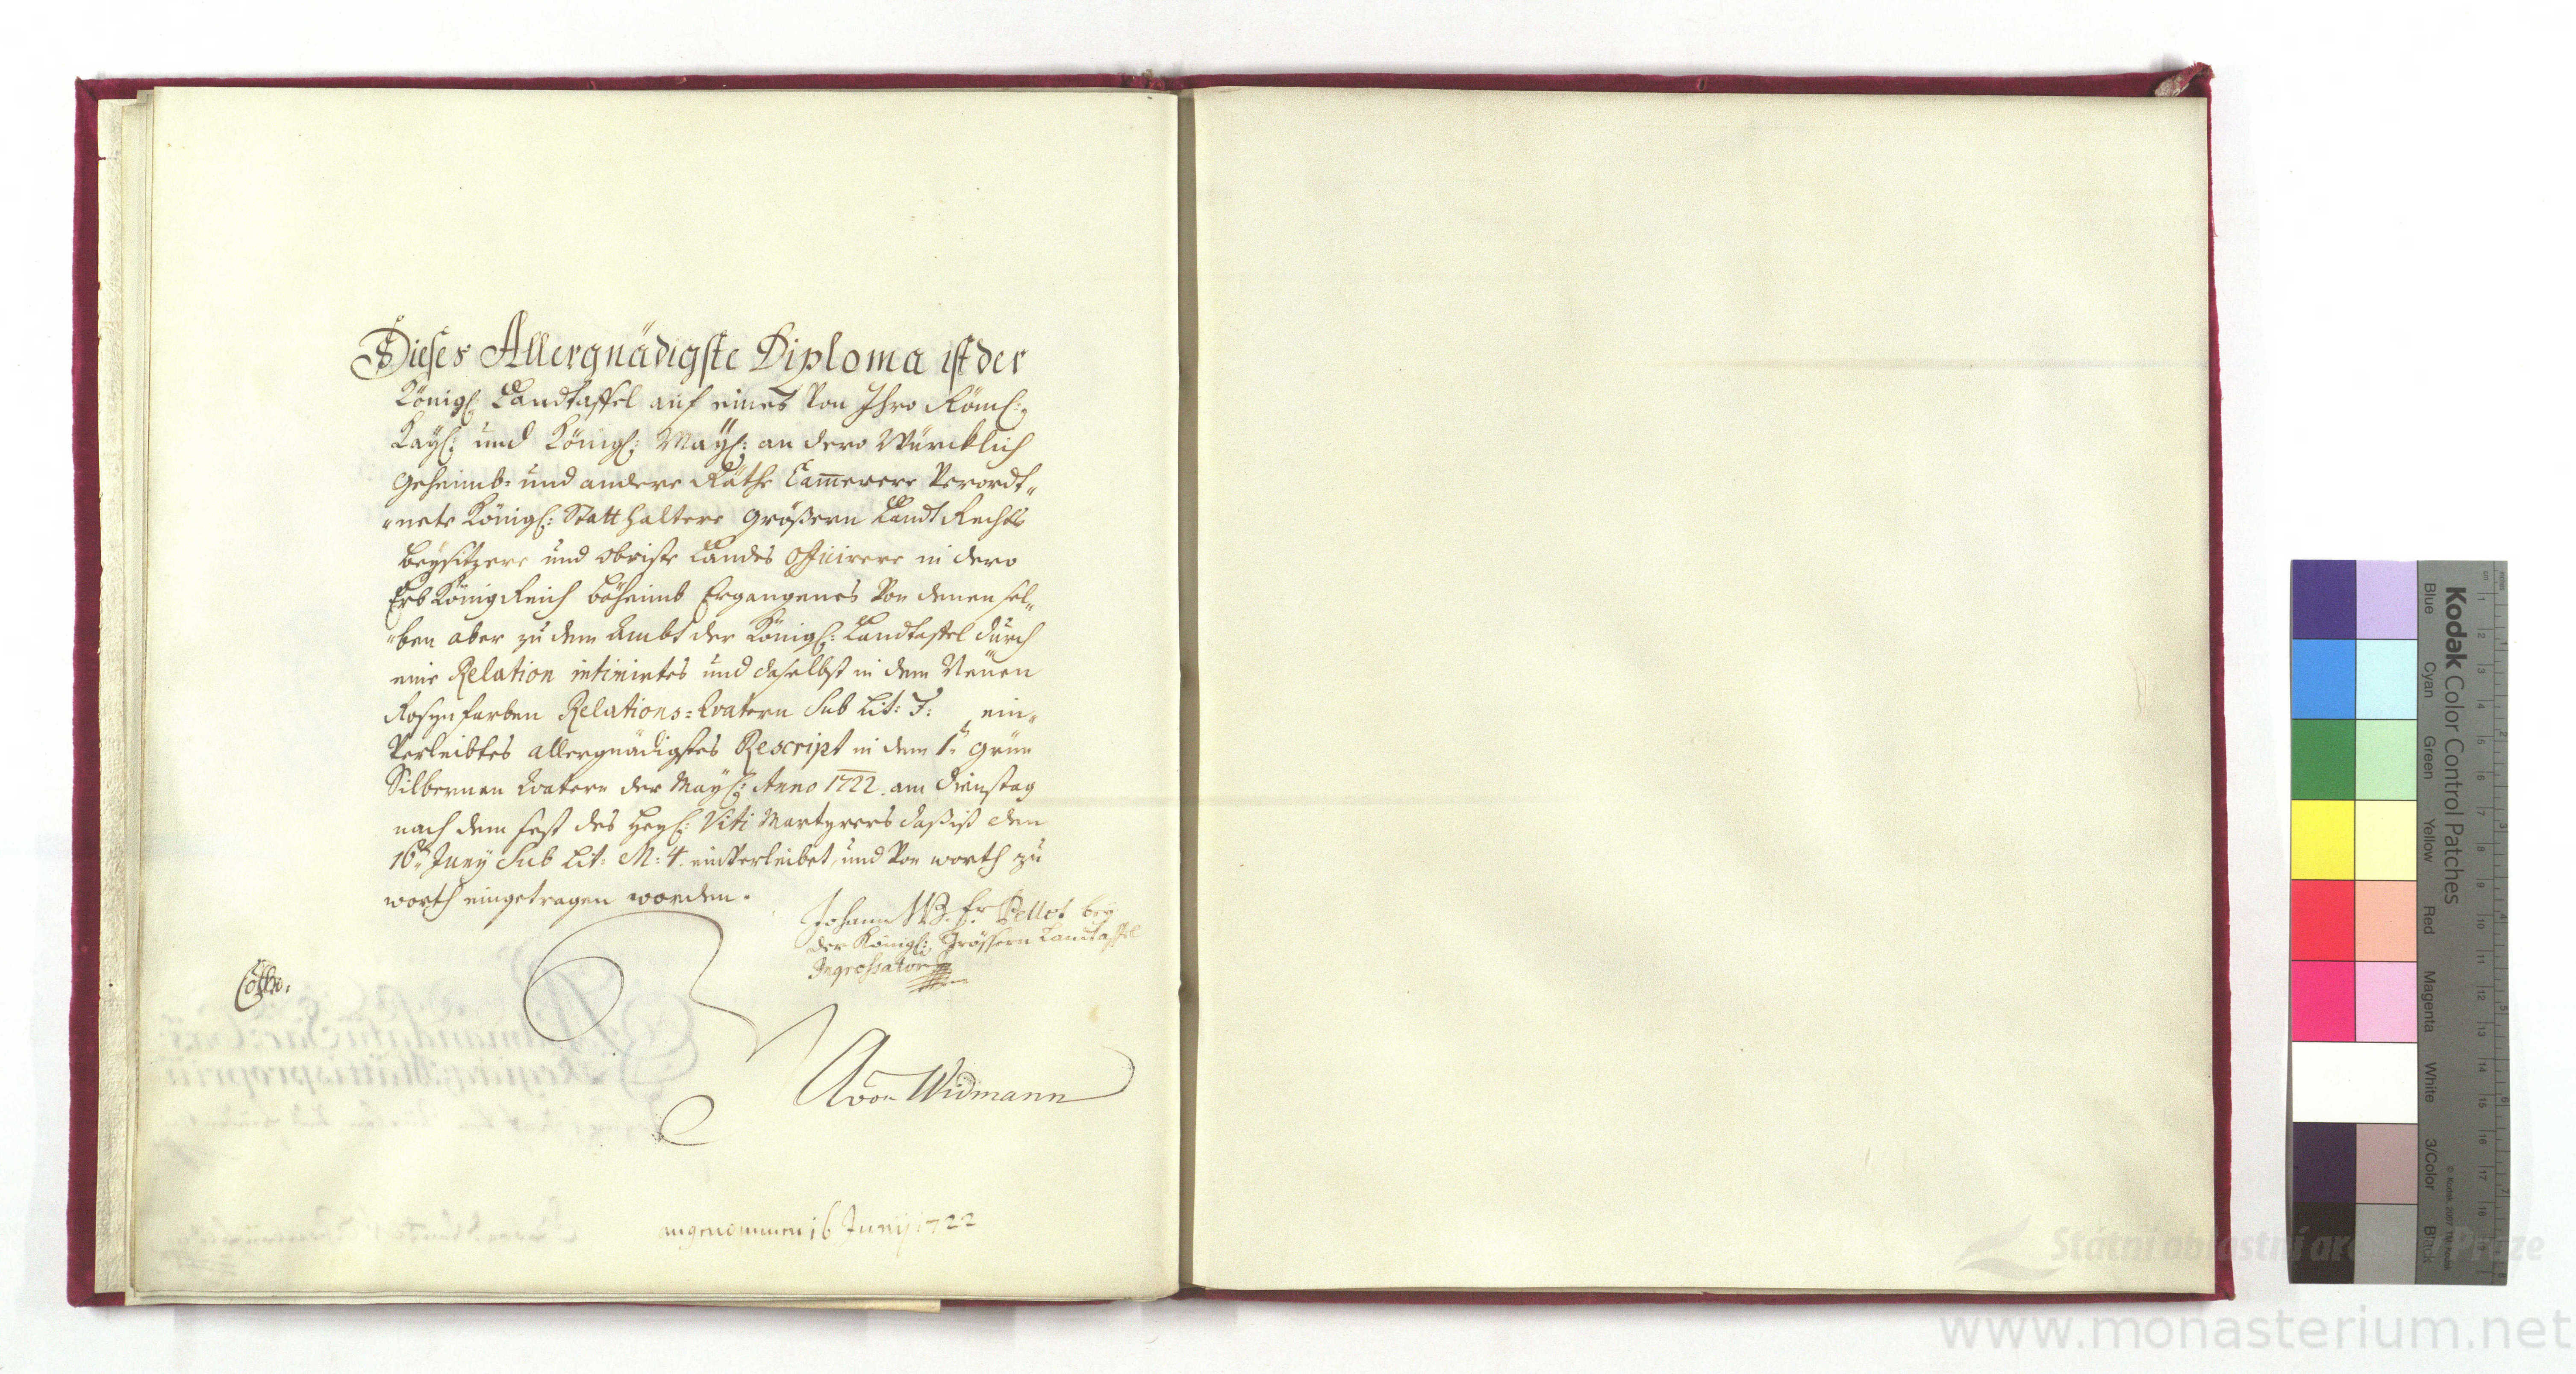 Dieses Allergnädigste Diploma ist der
Königl: Landtaffel auf eines Von Ihro Röm:
Kayl: und Königl: Mayl: an dero Würcklich
geheimb- und andere Räthe Cam̄erere Verordt„
„nete Königl: Statthaltere größern Landt Rechts
beysitzere und obriste Landes Officirere in dero
Erb Königreich böheimb Ergangenes Von denensel„
„ben aber zu dem Ambt der Königl: Landtaffel durch
eine Relation intimirtes und daselbst in dem Neüen
Rosynfarben Relations=Quatern Sub Lit: J: ein„
Verleibtes allergnädigstes Rescript in dem 1ten grün
Silbernen Quatern der Mayl: Anno 1722. am Dienstag
nach dem fest des Heyl: Viti Martyrers daß ist den
16ten Juny Sub Lit: M: 4. einVerleibet, und Von worth zu
worth eingetragen worden.
Johann W. Fr Pellet bey
der Königl: Grössern Landtaffel
Ingrossator
A von Widmann
angenommen 16 Junij 1722
Kodak Color Control Patches
© Kodak, 2007
Blue
Cyan
Green
Yellow
Red
Magenta
White
3/Color
Black
Státní oblastní archiv v Praze
www.monasterium.net